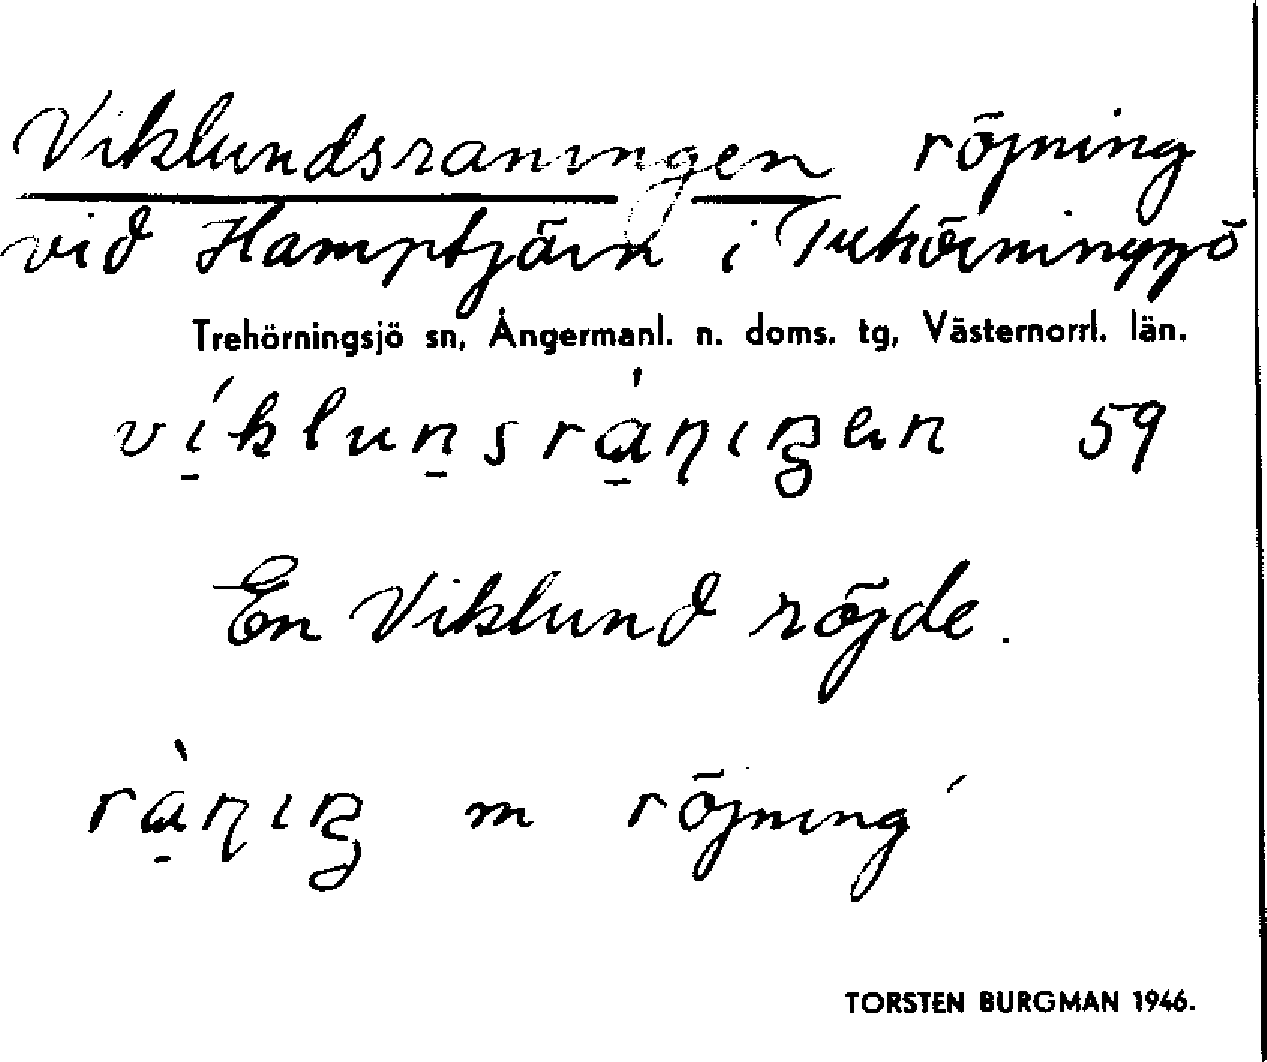 Viklundsraningen röjning
vid Hamptjärn i Trehörningsjö
Trehörningsjö sn, Ångermanl. n. doms. tg, Västernorrl. län.
víklunsrániŋen 59
En Viklund röjde.
ràniŋ m röjning
TORSTEN BURGMAN 1946.